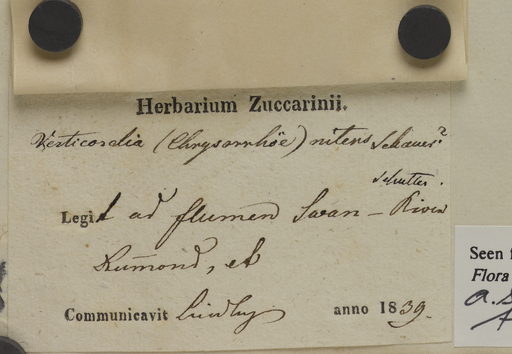 Herbarium Zuccarinii.
Verticordia (Chrysorrhöe) nitens Schauer?
Legit ad flumen Swan-River
Drumond, et
Communicavit Lindley anno 1839.
Seen f
Flora
a.s